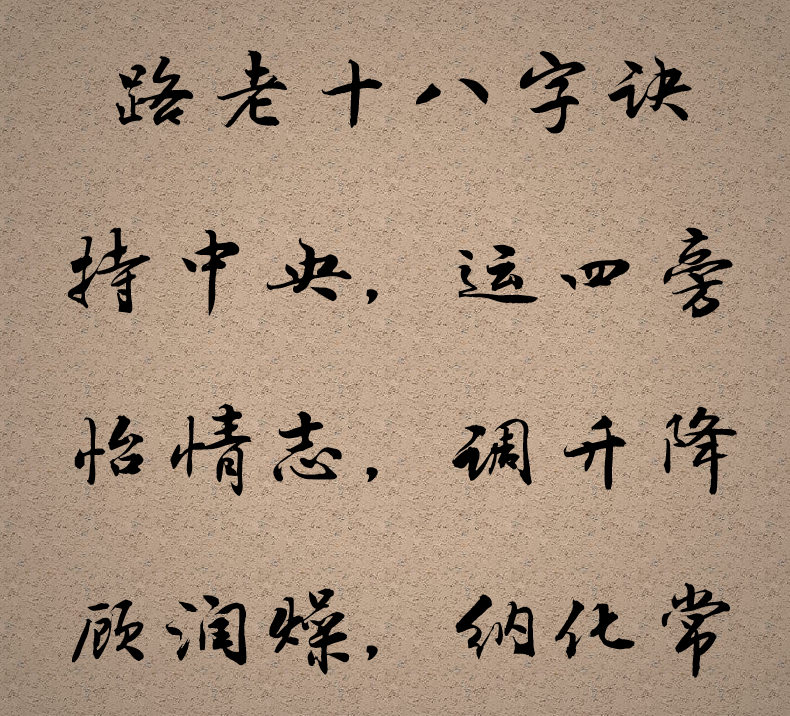 路老十八字诀
持中央，运四旁
怡情志，调升降
顾润燥，纳化常